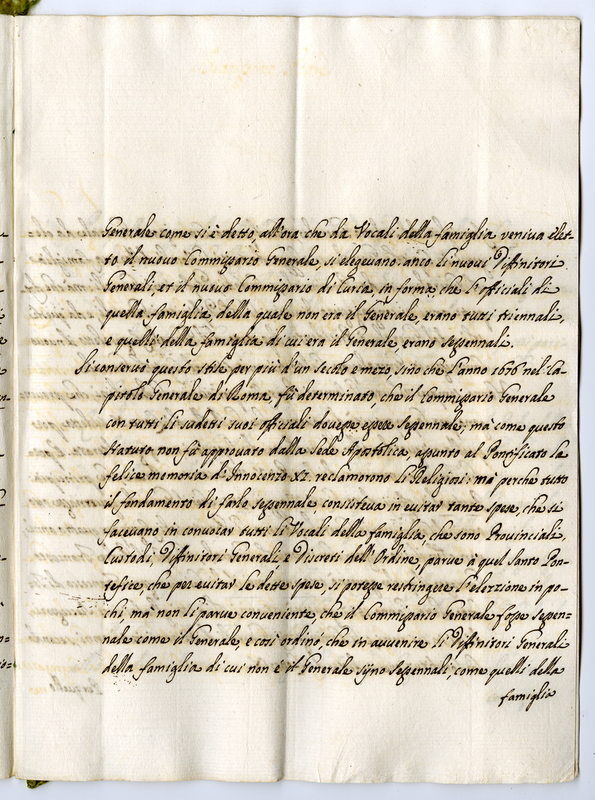 Generale come si è detto, all'ora che da Vocali della famiglia veniva elet-
to il nuovo Commissario Generale, si elegevano anco li nuovi Diffinitori
Generali, et il nuovo Commissario di Curia, in forma, che l'officiali di
quella famiglia della quale non era il Generale, erano tutti triennali,
e quelli della famiglia di cui era il Generale erano sessennali.
Si conservò questo stile per più d'un secolo e mezo, sino che l'anno 1676 nel Ca-
pitolo Generale di Roma, fù determinato, che il Commissario Generale
con tutti li sudetti suoi officiali dovesse essere sessennale; mà come questo
statuto non fù approvato dalla Sede Apostolica, assunto al Pontificato la
felice memoria di Innocenzo XI. reclamorono li Religiosi: mà perche tutto
il fondamento di farlo sessennale, consisteva in evitar tante spese, che si
facevano in convocar tutti li Vocali della famiglia, che sono Provinciali,
Custodi, Diffinitori Generali, e Discreti dell'Ordine, parve à quel Santo Pon-
tefice, che per evitar le dette spese, si potesse restringere l'elezzione in po-
chi, mà non li parve conveniente, che il Commissario Generale fosse sessen-
nale come il Generale, e così ordinò, che in avvenire li Diffinitori Generali
della famiglia di cui non è il Generale sijno sessennali, come quelli della
famiglia